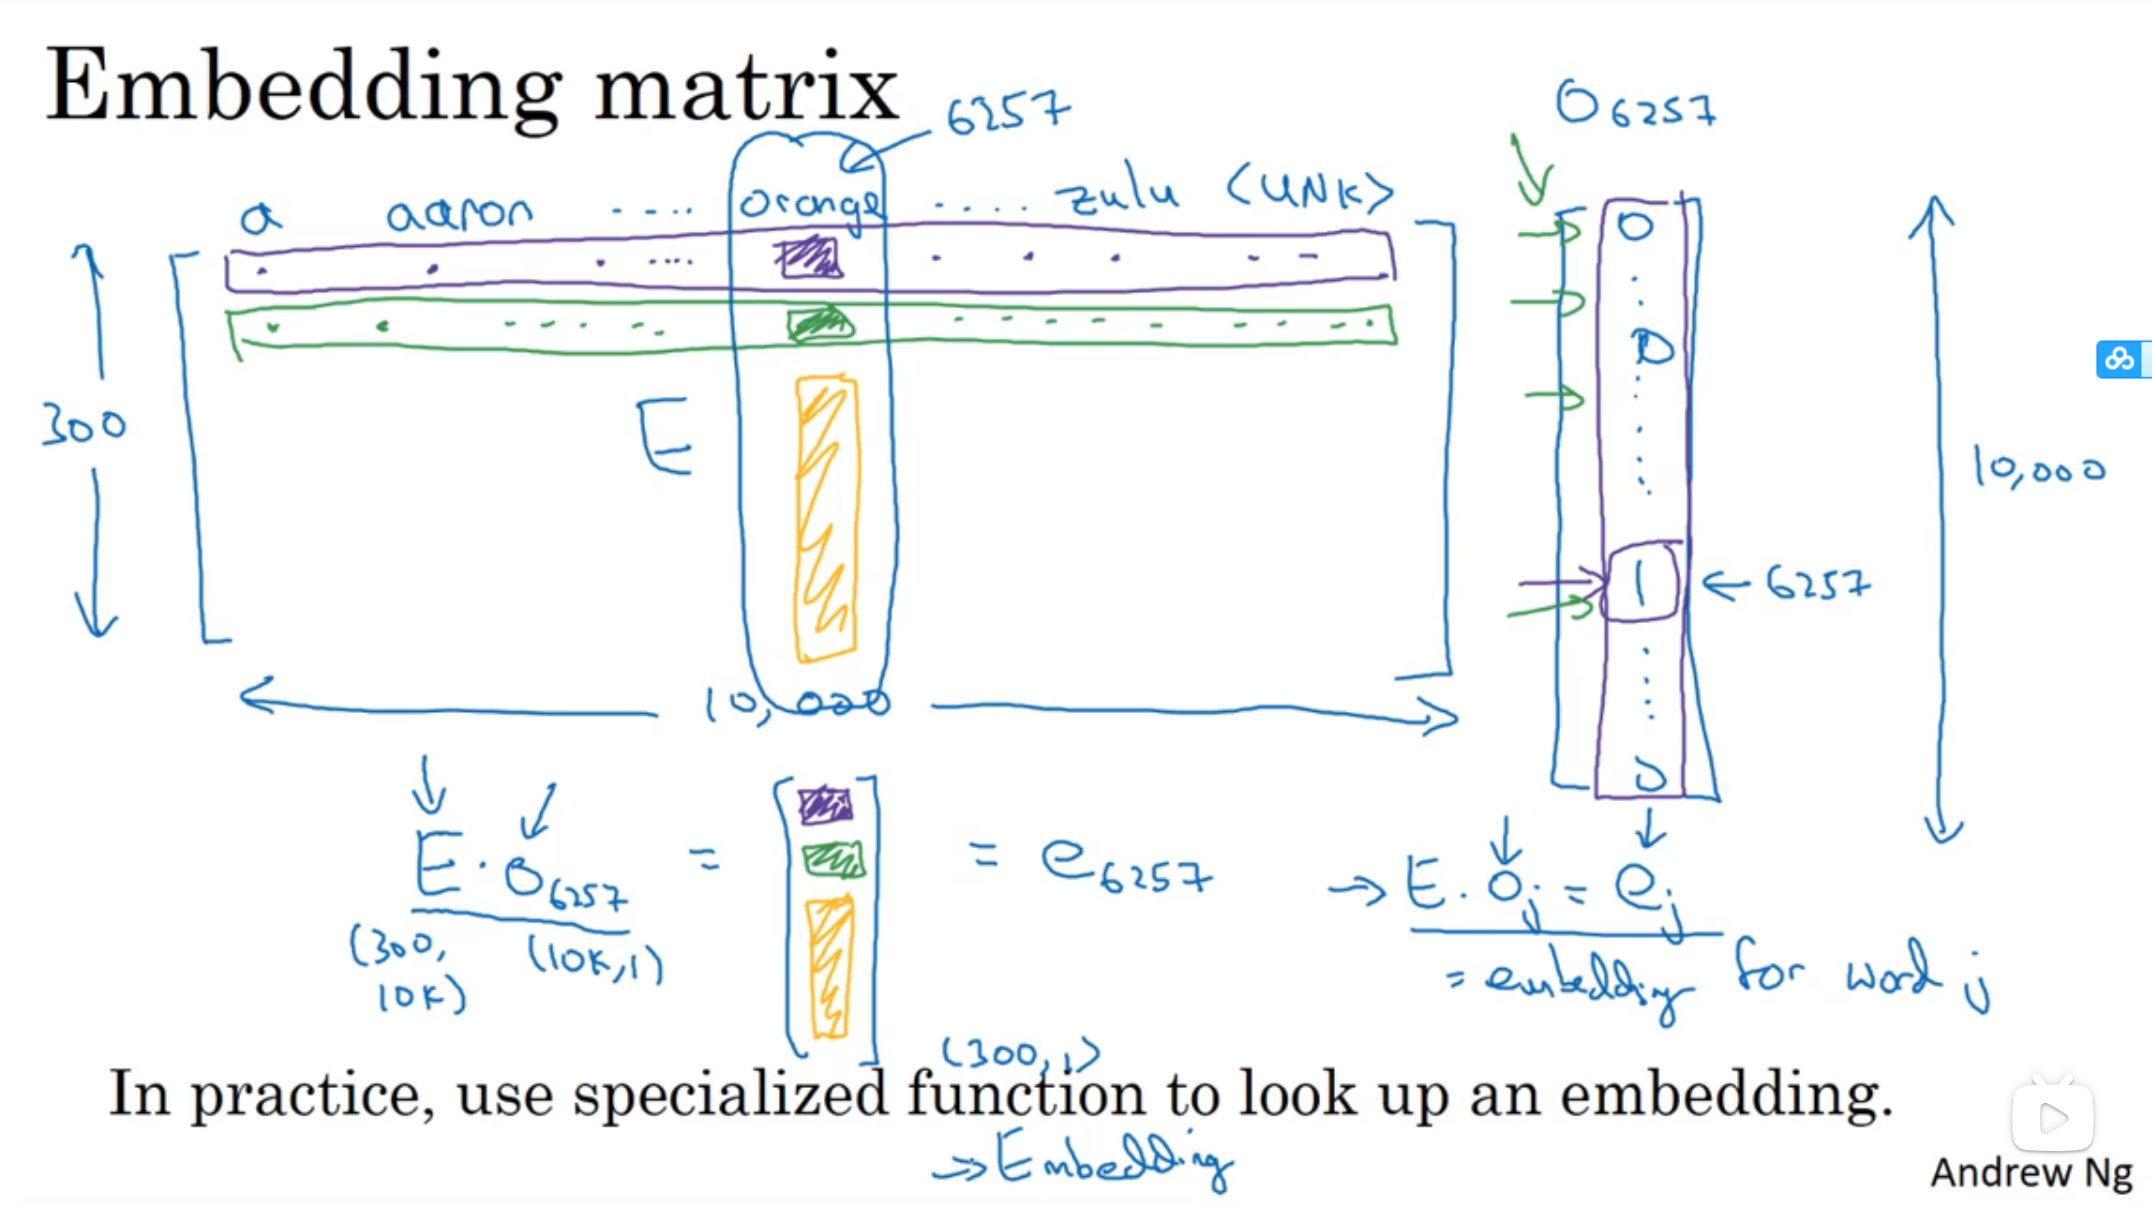 Embedding matrix
6257
O6257
a aaron .... orange .... zulu <UNK>
0
0
300
E
10,000
1
← 6257
10,000
0
E · O6257 = = e6257
(300, 10K) (10K,1)
(300,1)
→ E · Oj = ej
= embedding for word j
In practice, use specialized function to look up an embedding.
→ Embedding
Andrew Ng